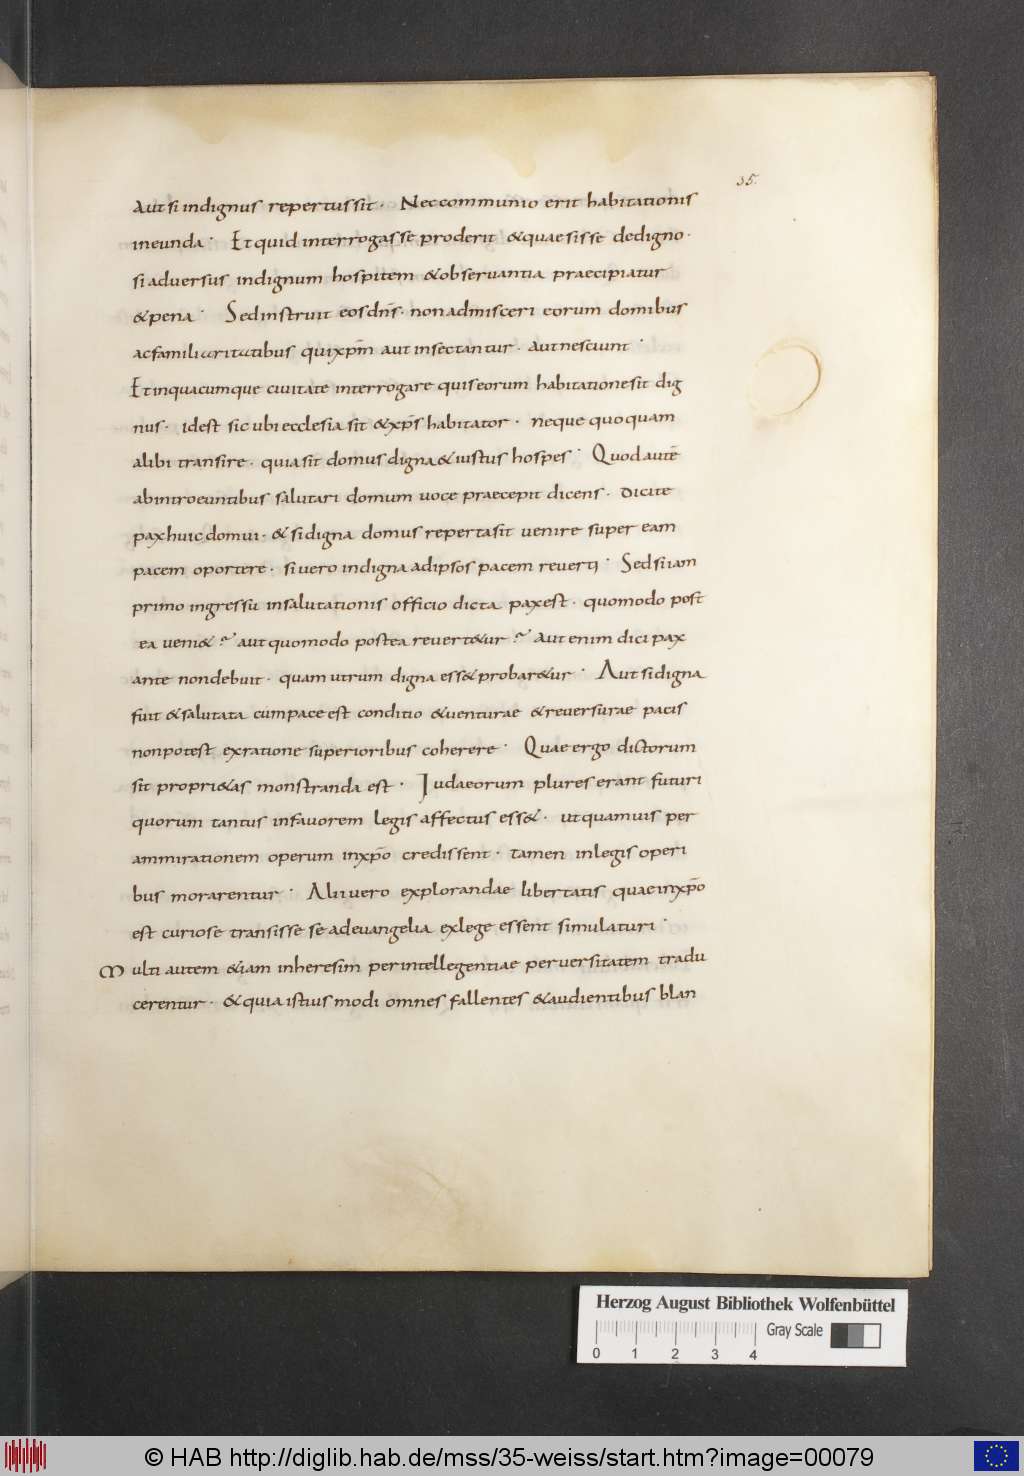 35.
aut si indignus repertus sit · Nec communio erit habitationis
ineunda · Et quid interrogasse proderit & quaesisse dedigno·
si adversus indignum hospitem & observantia praecipiatur
& pena · Sed instruit eos dn̄s · non admisceri eorum domibus
ac familiaritatibus qui xp̄m aut insectantur · aut nesciunt ·
Et in quacumque civitate interrogare quis eorum habitatione sit dig
nus · id est sic ubi ecclesia sit & xp̄s habitator · neque quoquam
alibi transire · quia sit domus digna & iustus hospes · Quod autē
ab introeuntibus salutari domum voce praecepit dicens · Dicite
pax huic domui · & si digna domus reperta sit venire super eam
pacem oportere · si vero indigna ad ipsos pacem reverti · Sed si iam
primo ingressu in salutationis officio dicta pax est · quomodo post
ea veni& ? aut quomodo postea revert&ur ? aut enim dici pax
ante non debuit · quam utrum digna ess& probar&ur · Aut si digna
fuit & salutata cum pace est conditio & venturae & reversurae pacis
non potest ex ratione superioribus coherere · Quae ergo dictorum
sit propri&as monstranda est · Iudaeorum plures erant futuri
quorum tantus in favorem legis affectus ess& · ut quamvis per
ammirationem operum in xp̄o credissent · tamen in legis operi
bus morarentur · Alii vero explorandae libertatis quae in xp̄o
est curiose transisse se ad evangelia ex lege essent simulaturi ·
Multi autem &iam in heresim per intellegentiae perversitatem tradu
cerentur · & quia istius modi omnes fallentes & audientibus blan
Herzog August Bibliothek Wolfenbüttel
Gray Scale
0 1 2 3 4
© HAB http://diglib.hab.de/mss/35-weiss/start.htm?image=00079